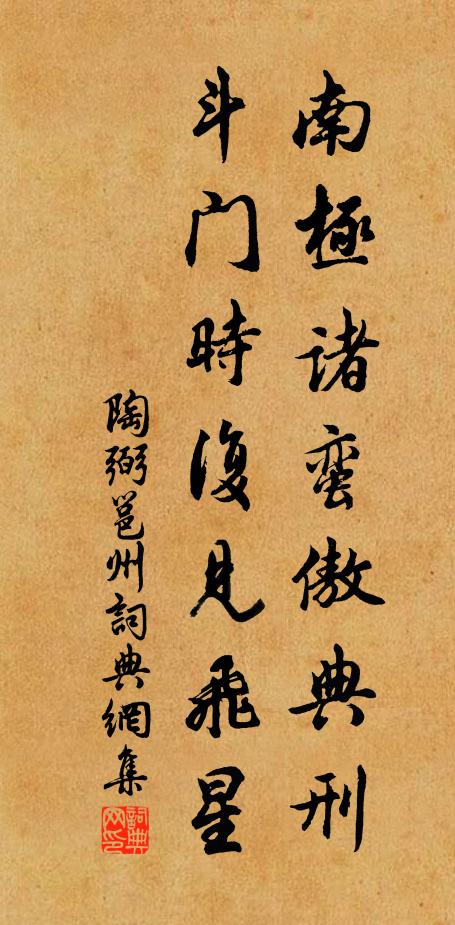 南極诸蛮傲典刑
斗门時復見飛星
陶弼邕州詞典網集
詞典网印